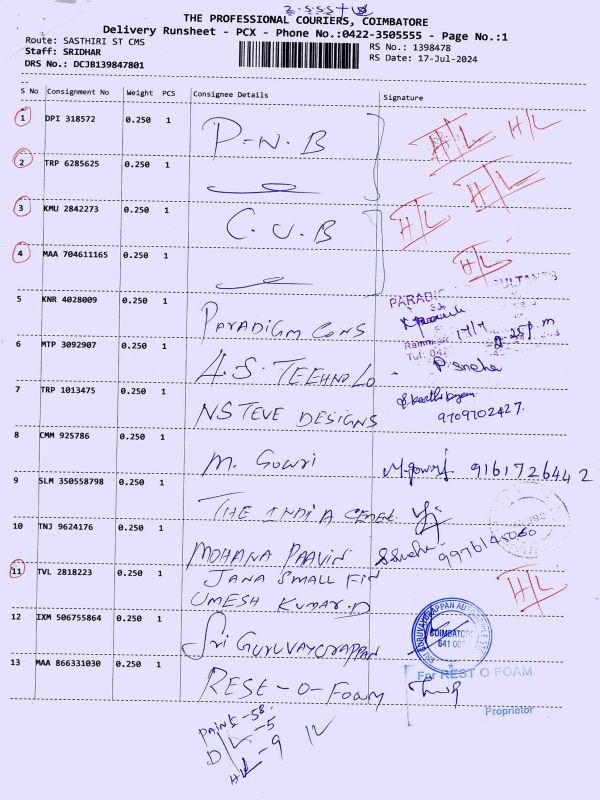 THE PROFESSIONAL COURIERS, COIMBATORE
Delivery Runsheet - PCX - Phone No.:0422-3505555 - Page No.:1
Route: SASTHIRI ST CMS
Staff: SRIDHAR
DRS No.: DCJB139847801
RS No.: 1398478
RS Date: 17-Jul-2024
S No Consignment No Weight PCS Consignee Details Signature
1 DPI 318572 0.250 1 P-N.B H/L H/L
2 TRP 6285625 0.250 1 H/L
3 KMU 2842273 0.250 1 C.U.B H/L
4 MAA 704611165 0.250 1 H/L
5 KNR 4028009 0.250 1 PARADIGM CONS
6 MTP 3092907 0.250 1 A.S. TEEHNOLO P. Sneha
7 TRP 1013475 0.250 1 NSTEVE DESIGNS 9709702427.
8 CMM 925786 0.250 1 M. Gowri M.gowri 9161726442
9 SLM 350558798 0.250 1 THE INDIA CEMET
10 TNJ 9624176 0.250 1 MOHANA PAAVIN
11 TVL 2818223 0.250 1 JANA SMALL FIN H/L
UMESH KUMAR.D
12 IXM 506755864 0.250 1 SRI GURUVAYURAPPAN
COIMBATORE
13 MAA 866331030 0.250 1 REST-O-FOAM
For REST O FOAM
Proprietor